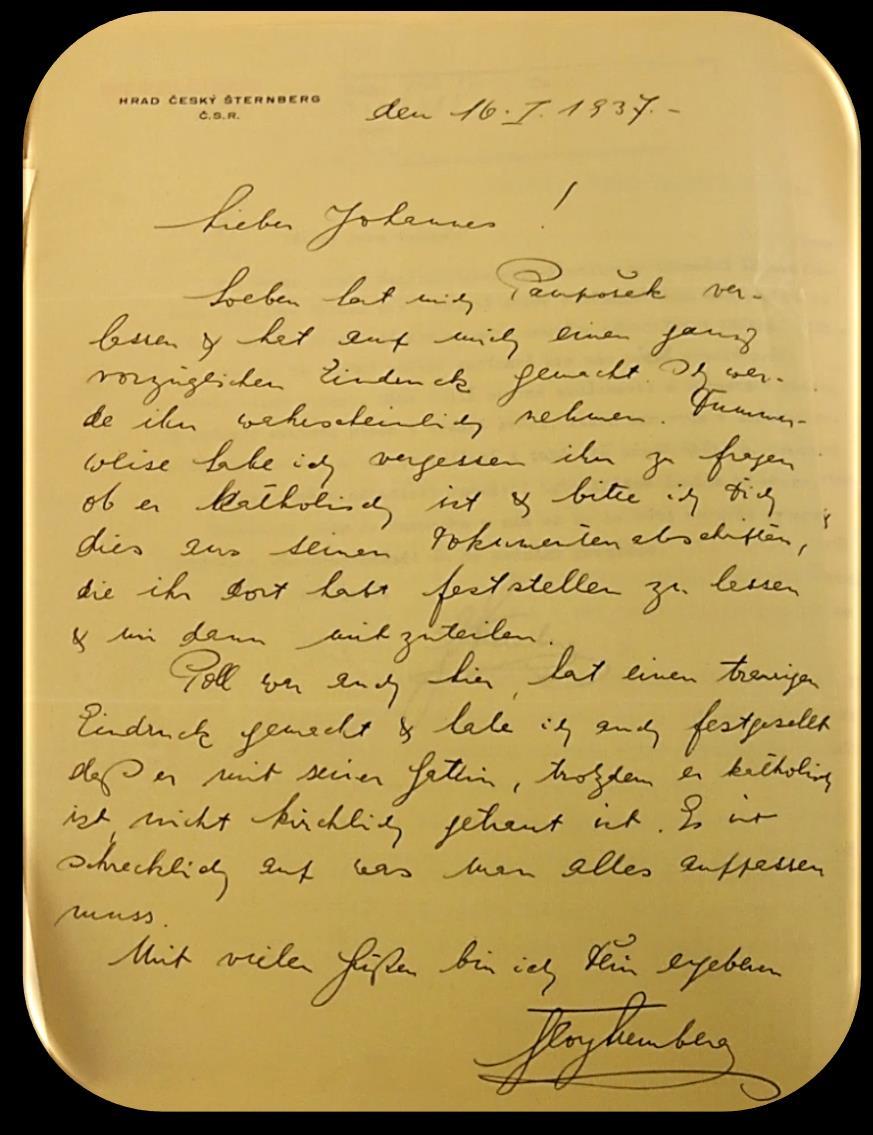 HRAD ČESKÝ ŠTERNBERG
Č.S.R.
den 16. I. 1937.-
Lieber Johannes !
Soeben hat mich Pamrošek ver-
lassen & hat auf mich einen ganz
vorzüglichen Eindruck gemacht. Ich wer-
de ihn wahrscheinlich nehmen. Dummer-
weise habe ich vergessen ihn zu fragen
ob er katholisch ist & bitte ich Dich
dies aus seinen Dokumentenabschriften,
die ihr dort habt feststellen zu lassen
& mir dann mitzuteilen.
Poll war auch hier, hat einen traurigen
Eindruck gemacht & habe ich auch festgestellt
daß er mit seiner Gattin, trotzdem er katholisch
ist, nicht kirchlich getraut ist. Es ist
schrecklich auf was man alles aufpassen
muss.
Mit vielen Grüßen bin ich Dein ergebener
Sternberg